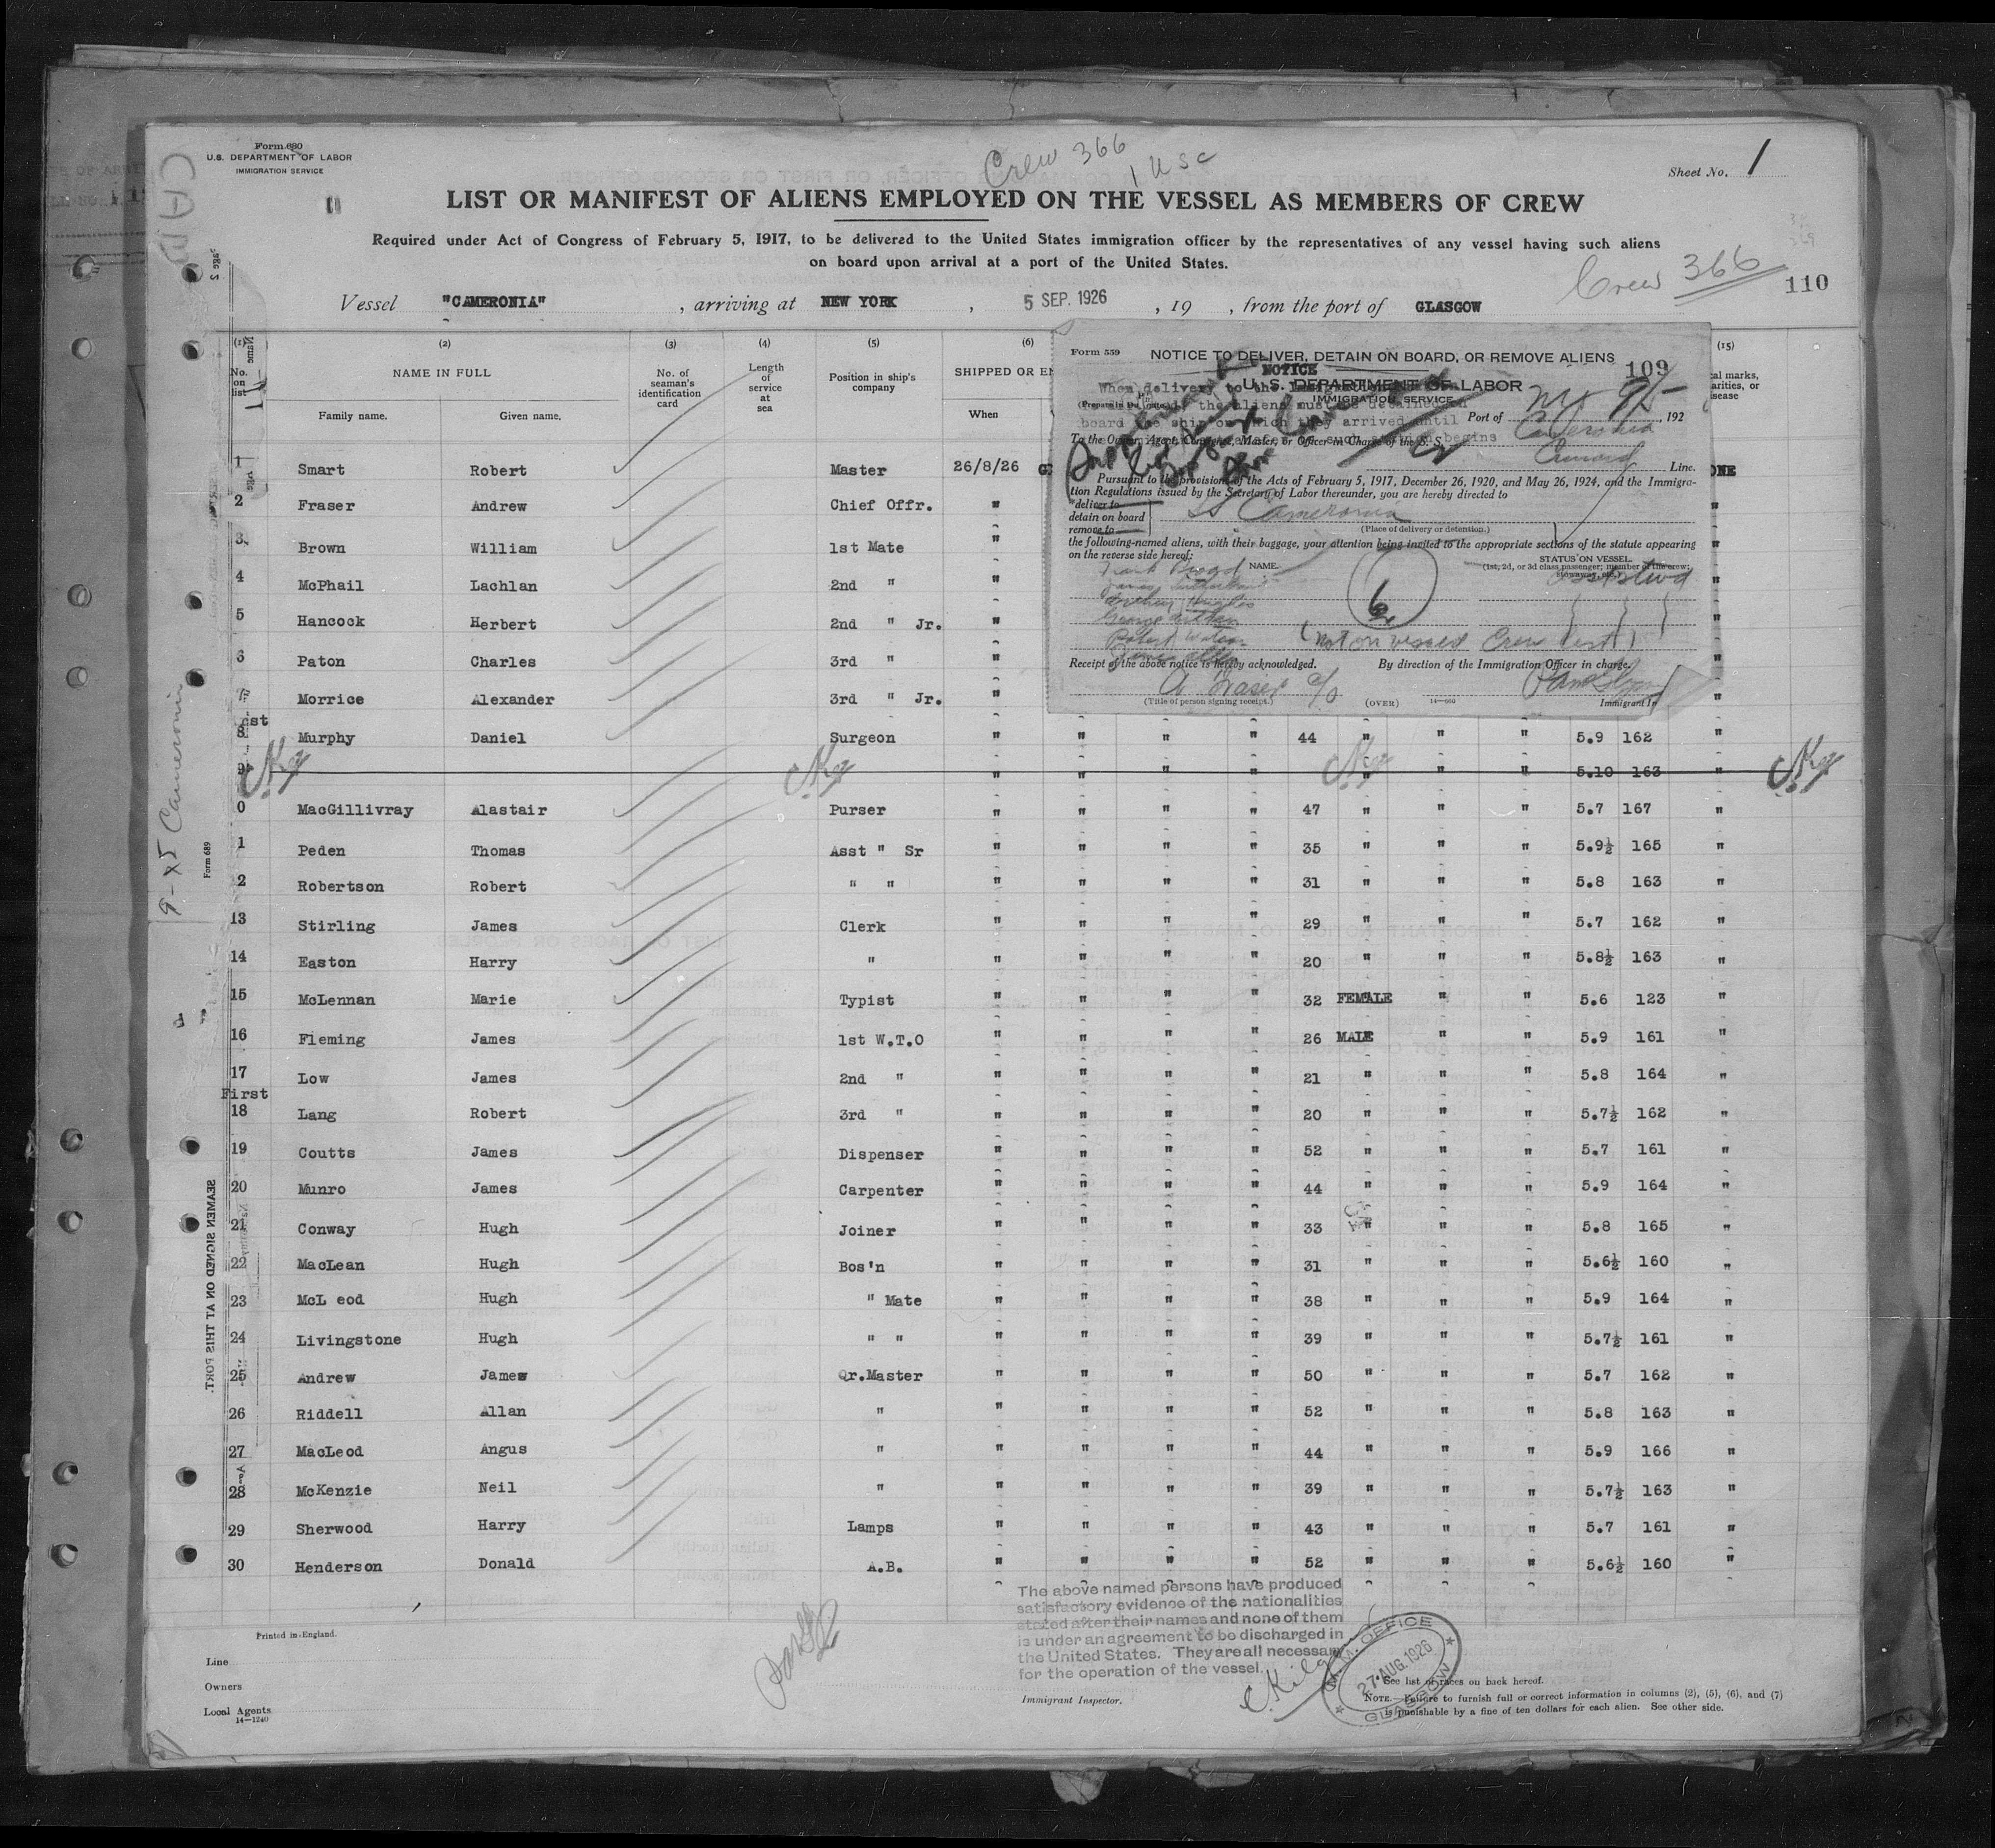 Form 680
U.S. DEPARTMENT OF LABOR
IMMIGRATION SERVICE
Crew 366
1 USC
Sheet No. 1
LIST OR MANIFEST OF ALIENS EMPLOYED ON THE VESSEL AS MEMBERS OF CREW
Required under Act of Congress of February 5, 1917, to be delivered to the United States immigration officer by the representatives of any vessel having such aliens
on board upon arrival at a port of the United States.
Crew 366
110
Vessel "CAMERONIA", arriving at NEW YORK, 5 SEP. 1926, 19 , from the port of GLASGOW
(2) (3) (4) (5) (6) (15)
No. on list
NAME IN FULL
Family name. Given name.
No. of seaman's identification card
Length of service at sea
Position in ship's company
SHIPPED OR
When
Form 559
NOTICE TO DELIVER, DETAIN ON BOARD, OR REMOVE ALIENS
109
NOTICE
U. S. DEPARTMENT OF LABOR
IMMIGRATION SERVICE
Port of , 192
To the Owner, Agent, Consignee, Master, or Officer in Charge of the S. S. Cameronia
Cunard Line.
Pursuant to the provisions of the Acts of February 5, 1917, December 26, 1920, and May 26, 1924, and the Immigra-
tion Regulations issued by the Secretary of Labor thereunder, you are hereby directed to
deliver to
detain on board SS Cameronia
remove to
(Place of delivery or detention.)
the following-named aliens, with their baggage, your attention being invited to the appropriate sections of the statute appearing
on the reverse side hereof:
NAME.
STATUS ON VESSEL.
(1st, 2d, or 3d class passenger; member of the crew; stowaway, etc.)
6
(Not on vessel Crew List)
Receipt of the above notice is hereby acknowledged.
By direction of the Immigration Officer in charge.
A Fraser c/o
(Title of person signing receipt.)
(OVER)
Immigrant In
1 Smart Robert Master 26/8/26
2 Fraser Andrew Chief Offr. "
3 Brown William 1st Mate "
4 McPhail Lachlan 2nd " "
5 Hancock Herbert 2nd " Jr. "
6 Paton Charles 3rd " "
7 Morrice Alexander 3rd " Jr. "
8 Murphy Daniel Surgeon " " " " 44 " " " 5.9 162 "
9 " " " " " " " 5.10 163 "
0 MacGillivray Alastair Purser " " " " 47 " " " 5.7 167 "
1 Peden Thomas Asst " Sr " " " " 35 " " " 5.9½ 165 "
2 Robertson Robert " " " " " " 31 " " " 5.8 163 "
13 Stirling James Clerk " " " " 29 " " " 5.7 162 "
14 Easton Harry " " " " " 20 " " " 5.8½ 163 "
15 McLennan Marie Typist " " " " 32 FEMALE " " 5.6 123 "
16 Fleming James 1st W.T.O " " " " 26 MALE " " 5.9 161 "
17 Low James 2nd " " " " " 21 " " " 5.8 164 "
First
18 Lang Robert 3rd " " " " " 20 " " " 5.7½ 162 "
19 Coutts James Dispenser " " " " 52 " " " 5.7 161 "
20 Munro James Carpenter " " " " 44 " " " 5.9 164 "
21 Conway Hugh Joiner " " " " 33 " " " 5.8 165 "
22 MacLean Hugh Bos'n " " " " 31 " " " 5.6½ 160 "
23 McL eod Hugh " Mate " " " " 38 " " " 5.9 164 "
24 Livingstone Hugh " " " " " " 39 " " " 5.7½ 161 "
25 Andrew James Qr.Master " " " " 50 " " " 5.7 162 "
26 Riddell Allan " " " " " 52 " " " 5.8 163 "
27 MacLeod Angus " " " " " 44 " " " 5.9 166 "
28 McKenzie Neil " " " " " 39 " " " 5.7½ 163 "
29 Sherwood Harry Lamps " " " " 43 " " " 5.7 161 "
30 Henderson Donald A.B. " " " " 52 " " " 5.6½ 160 "
Form 689
SEAMEN SIGNED ON AT THIS PORT.
The above named persons have produced
satisfactory evidence of the nationalities
stated after their names and none of them
is under an agreement to be discharged in
the United States. They are all necessary
for the operation of the vessel.
Immigrant Inspector.
M.M. OFFICE
27 AUG. 1926
GLASGOW
Printed in England.
Line
Owners
Local Agents
14—1240
See list of races on back hereof.
NOTE.—Failure to furnish full or correct information in columns (2), (5), (6), and (7)
is punishable by a fine of ten dollars for each alien. See other side.